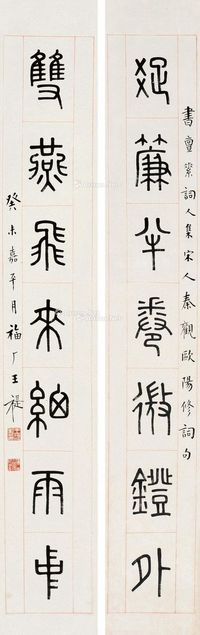 疏簾半卷微鐙外
書詞人集宋人秦觀歐陽修詞句
雙燕飛來細雨中
癸未嘉平月福厂王禔